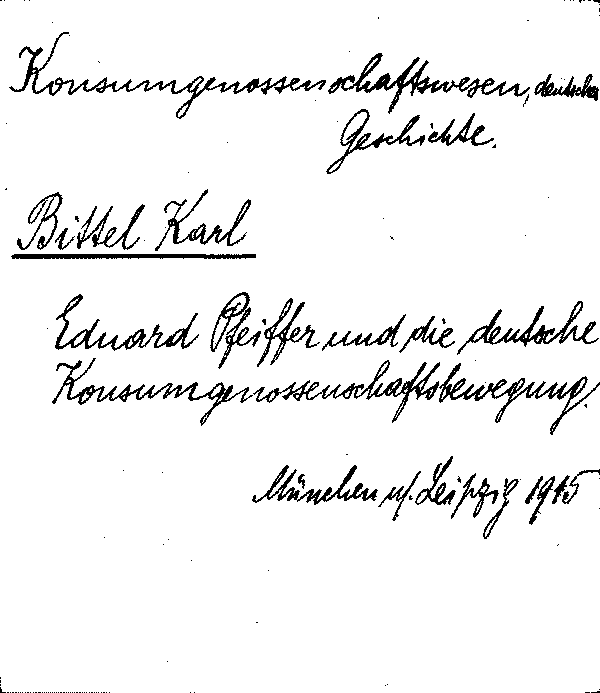 Konsumgenossenschaftswesen, deutsches
Geschichte.
Bittel Karl
Eduard Pfeiffer und die deutsche
Konsumgenossenschaftsbewegung.
München u/. Leipzig 1915